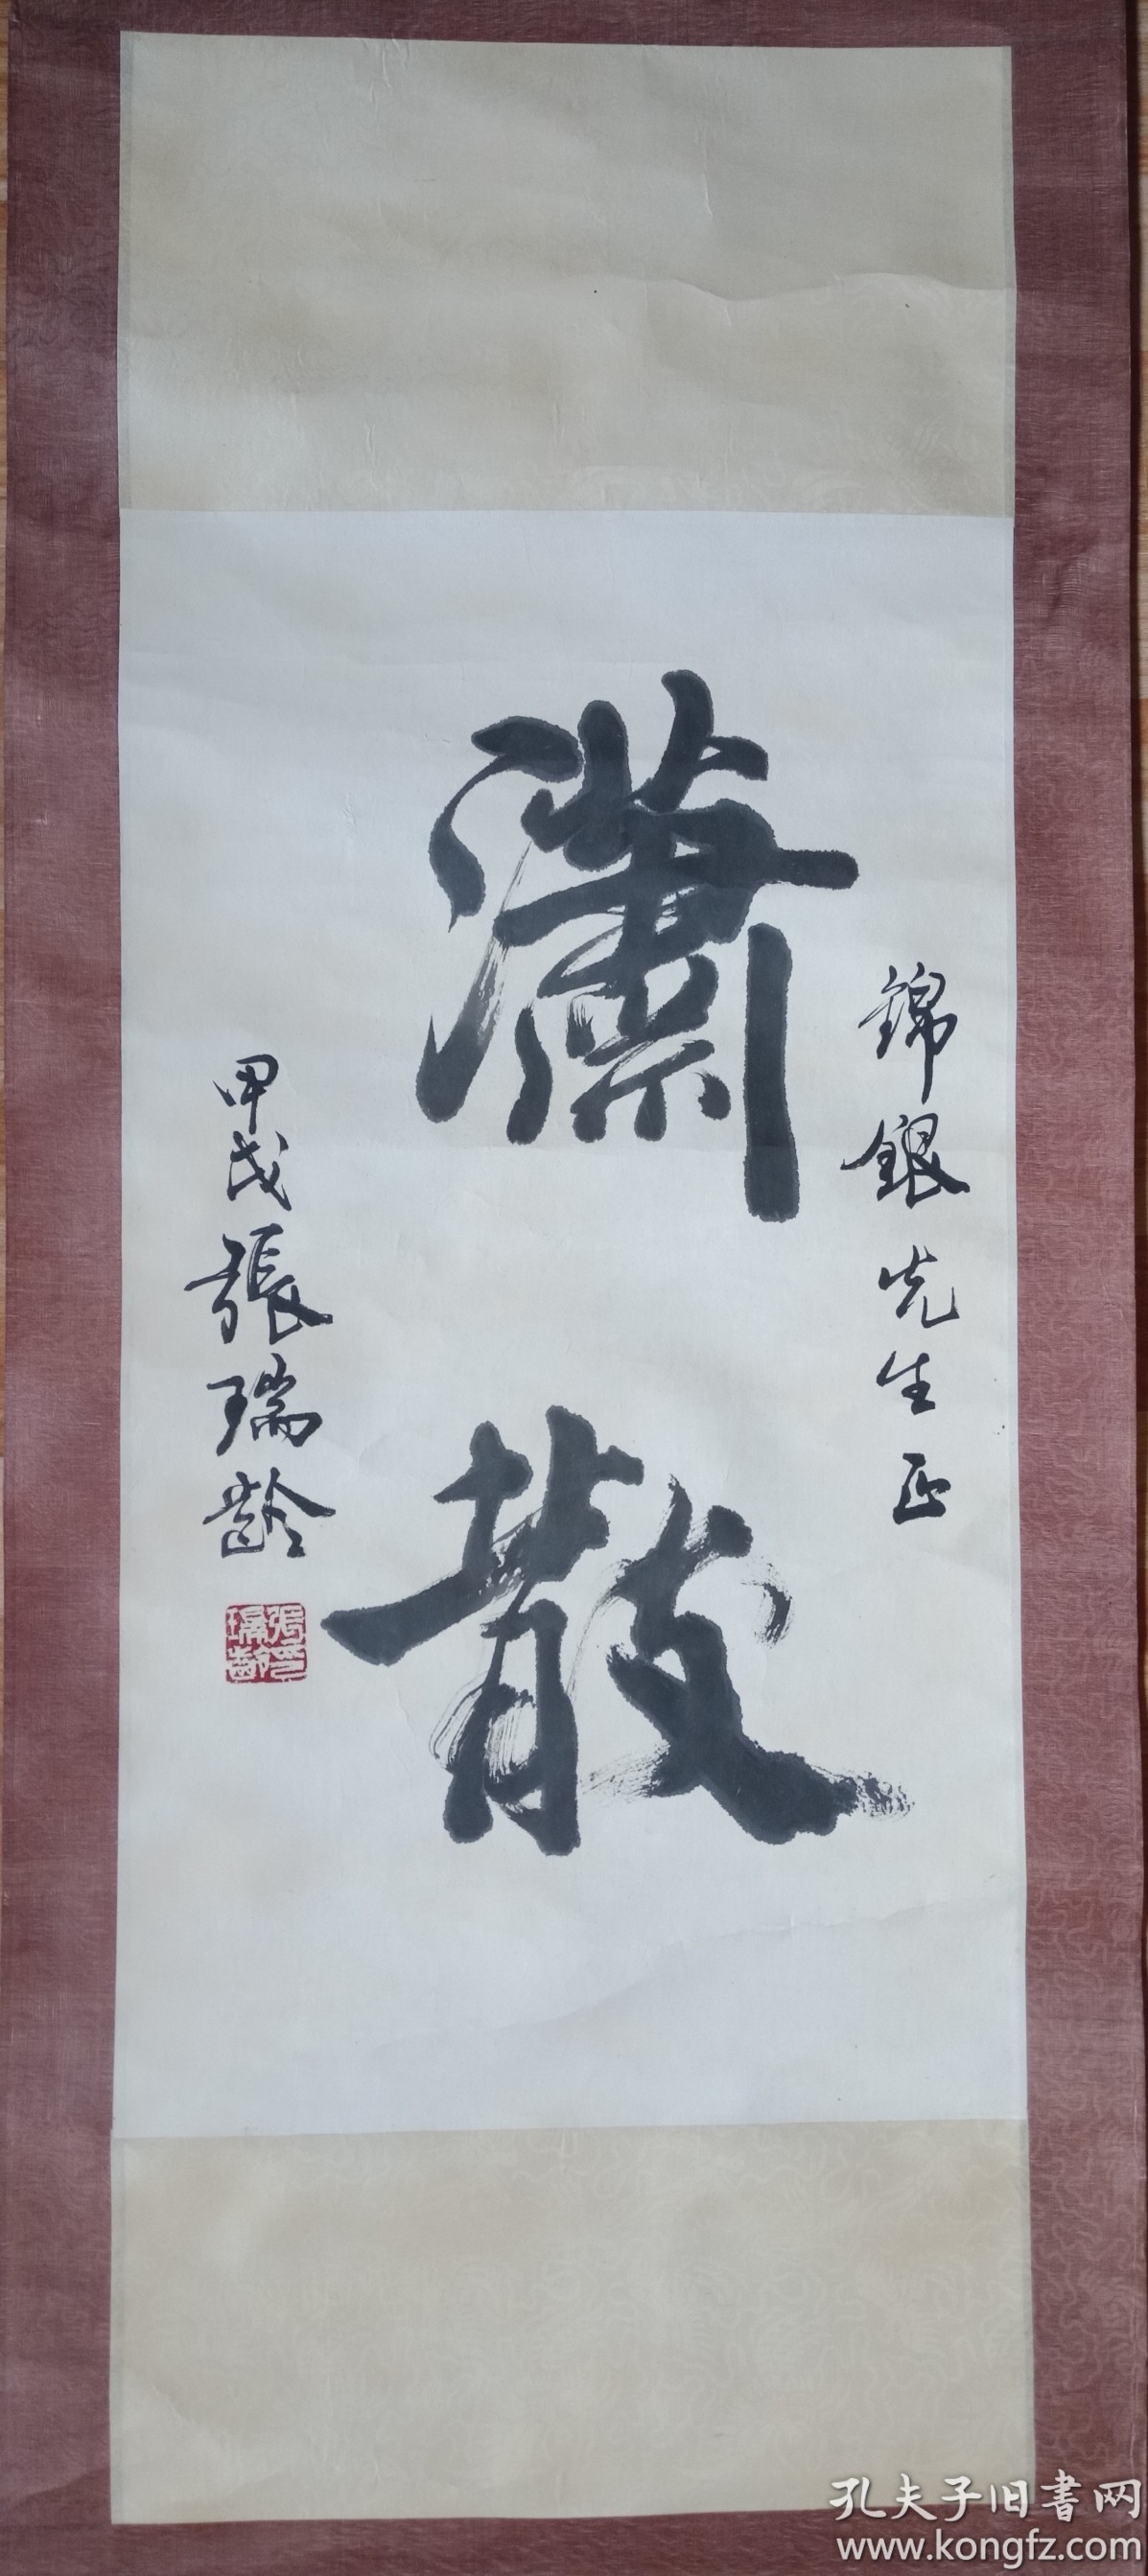 錦銀先生正
瀟散
甲戌張瑞齡
張瑞齡印
孔夫子旧書网
www.kongfz.com